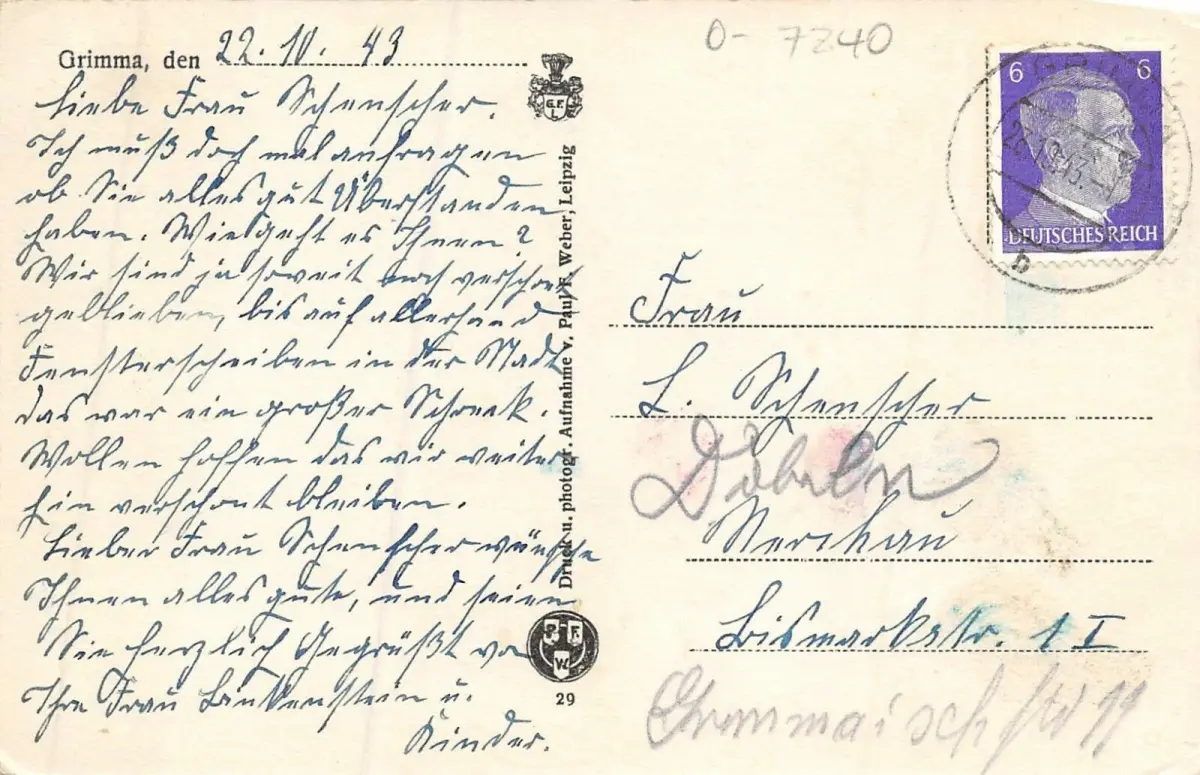 Grimma, den 22.10.43
Liebe Frau Schenscher.
Ich muß doch mal anfragen
ob Sie alles gut Überstanden
haben. Wie geht es Ihnen?
Wir sind ja soweit noch verschont
geblieben, bis auf allerhand
Fensterscheiben in der Stadt
das war ein großer Schreck.
Wollen hoffen das wir weiter
hin verschont bleiben.
Lieber Frau Schenscher wünsche
Ihnen alles gute, und seien
Sie herzlich Gegrüßt von
Ihre Frau Linkenstein u.
Kinder.
G.F.
L
Druck u. photogr. Aufnahme v. Paul F. Weber, Leipzig
P. F.
W.
29
O- 7240
6 6
DEUTSCHES REICH
GRIMMA
b
Frau
L. Schenscher
Döbeln
Nerchau
Bismarkstr. 1 I